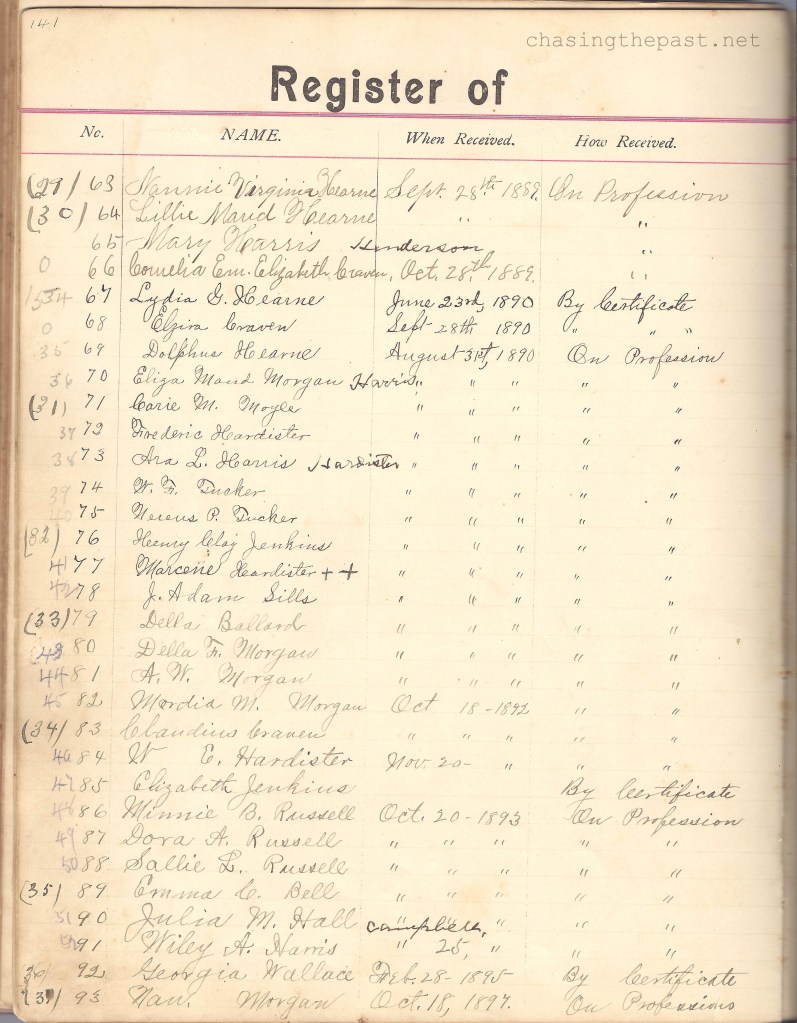 141
chasingthepast.net
Register of
No. NAME. When Received. How Received.
(29) 63 Nannie Virginia Hearne Sept. 28th 1889. On Profession
(30) 64 Lillie Maud Hearne " " "
65 Mary Harris Henderson "
0 66 Cornelia Em. Elizabeth Craven, Oct. 28th, 1889. "
34 67 Lydia G. Hearne June 23rd, 1890 By Certificate
0 68 Elzira Craven Sept 28th 1890 " " "
35 69 Dolphus Hearne August 31st, 1890 On Profession
36 70 Eliza Maud Morgan Harris " " " " "
(31) 71 Carie M. Moyle " " " " "
37 72 Frederic Hardister " " " " "
38 73 Ara L. Harris Hardister " " " " "
39 74 W. F. Tucker " " " " "
40 75 P. Tucker " " " " "
(82) 76 Henry Clay Jenkins " " " " "
41 77 Marcene Hardister ++ " " " " "
42 78 J. Adam Sills " " " " "
(33) 79 Della Ballard " " " " "
43 80 Della F. Morgan " " " " "
44 81 A. W. Morgan " " " " "
45 82 Mordia M. Morgan Oct 18 - 1892 " "
(34) 83 Claudius Craven " " " " "
46 84 W E. Hardister Nov. 20 - " " "
47 85 Elizabeth Jenkins By Certificate
48 86 Minnie B. Russell Oct. 20 - 1893 On Profession
49 87 Dora A. Russell " " " " "
50 88 Sallie L. Russell " " " " "
(35) 89 Emma C. Bell " " " " "
51 90 Julia M. Hall Campbell, " " " " "
52 91 Wiley A. Harris " 25, " " "
36 92 Georgia Wallace Feb. 28 - 1895 By Certificate
(37) 93 Nan. Morgan Oct. 18, 1897. On Professions